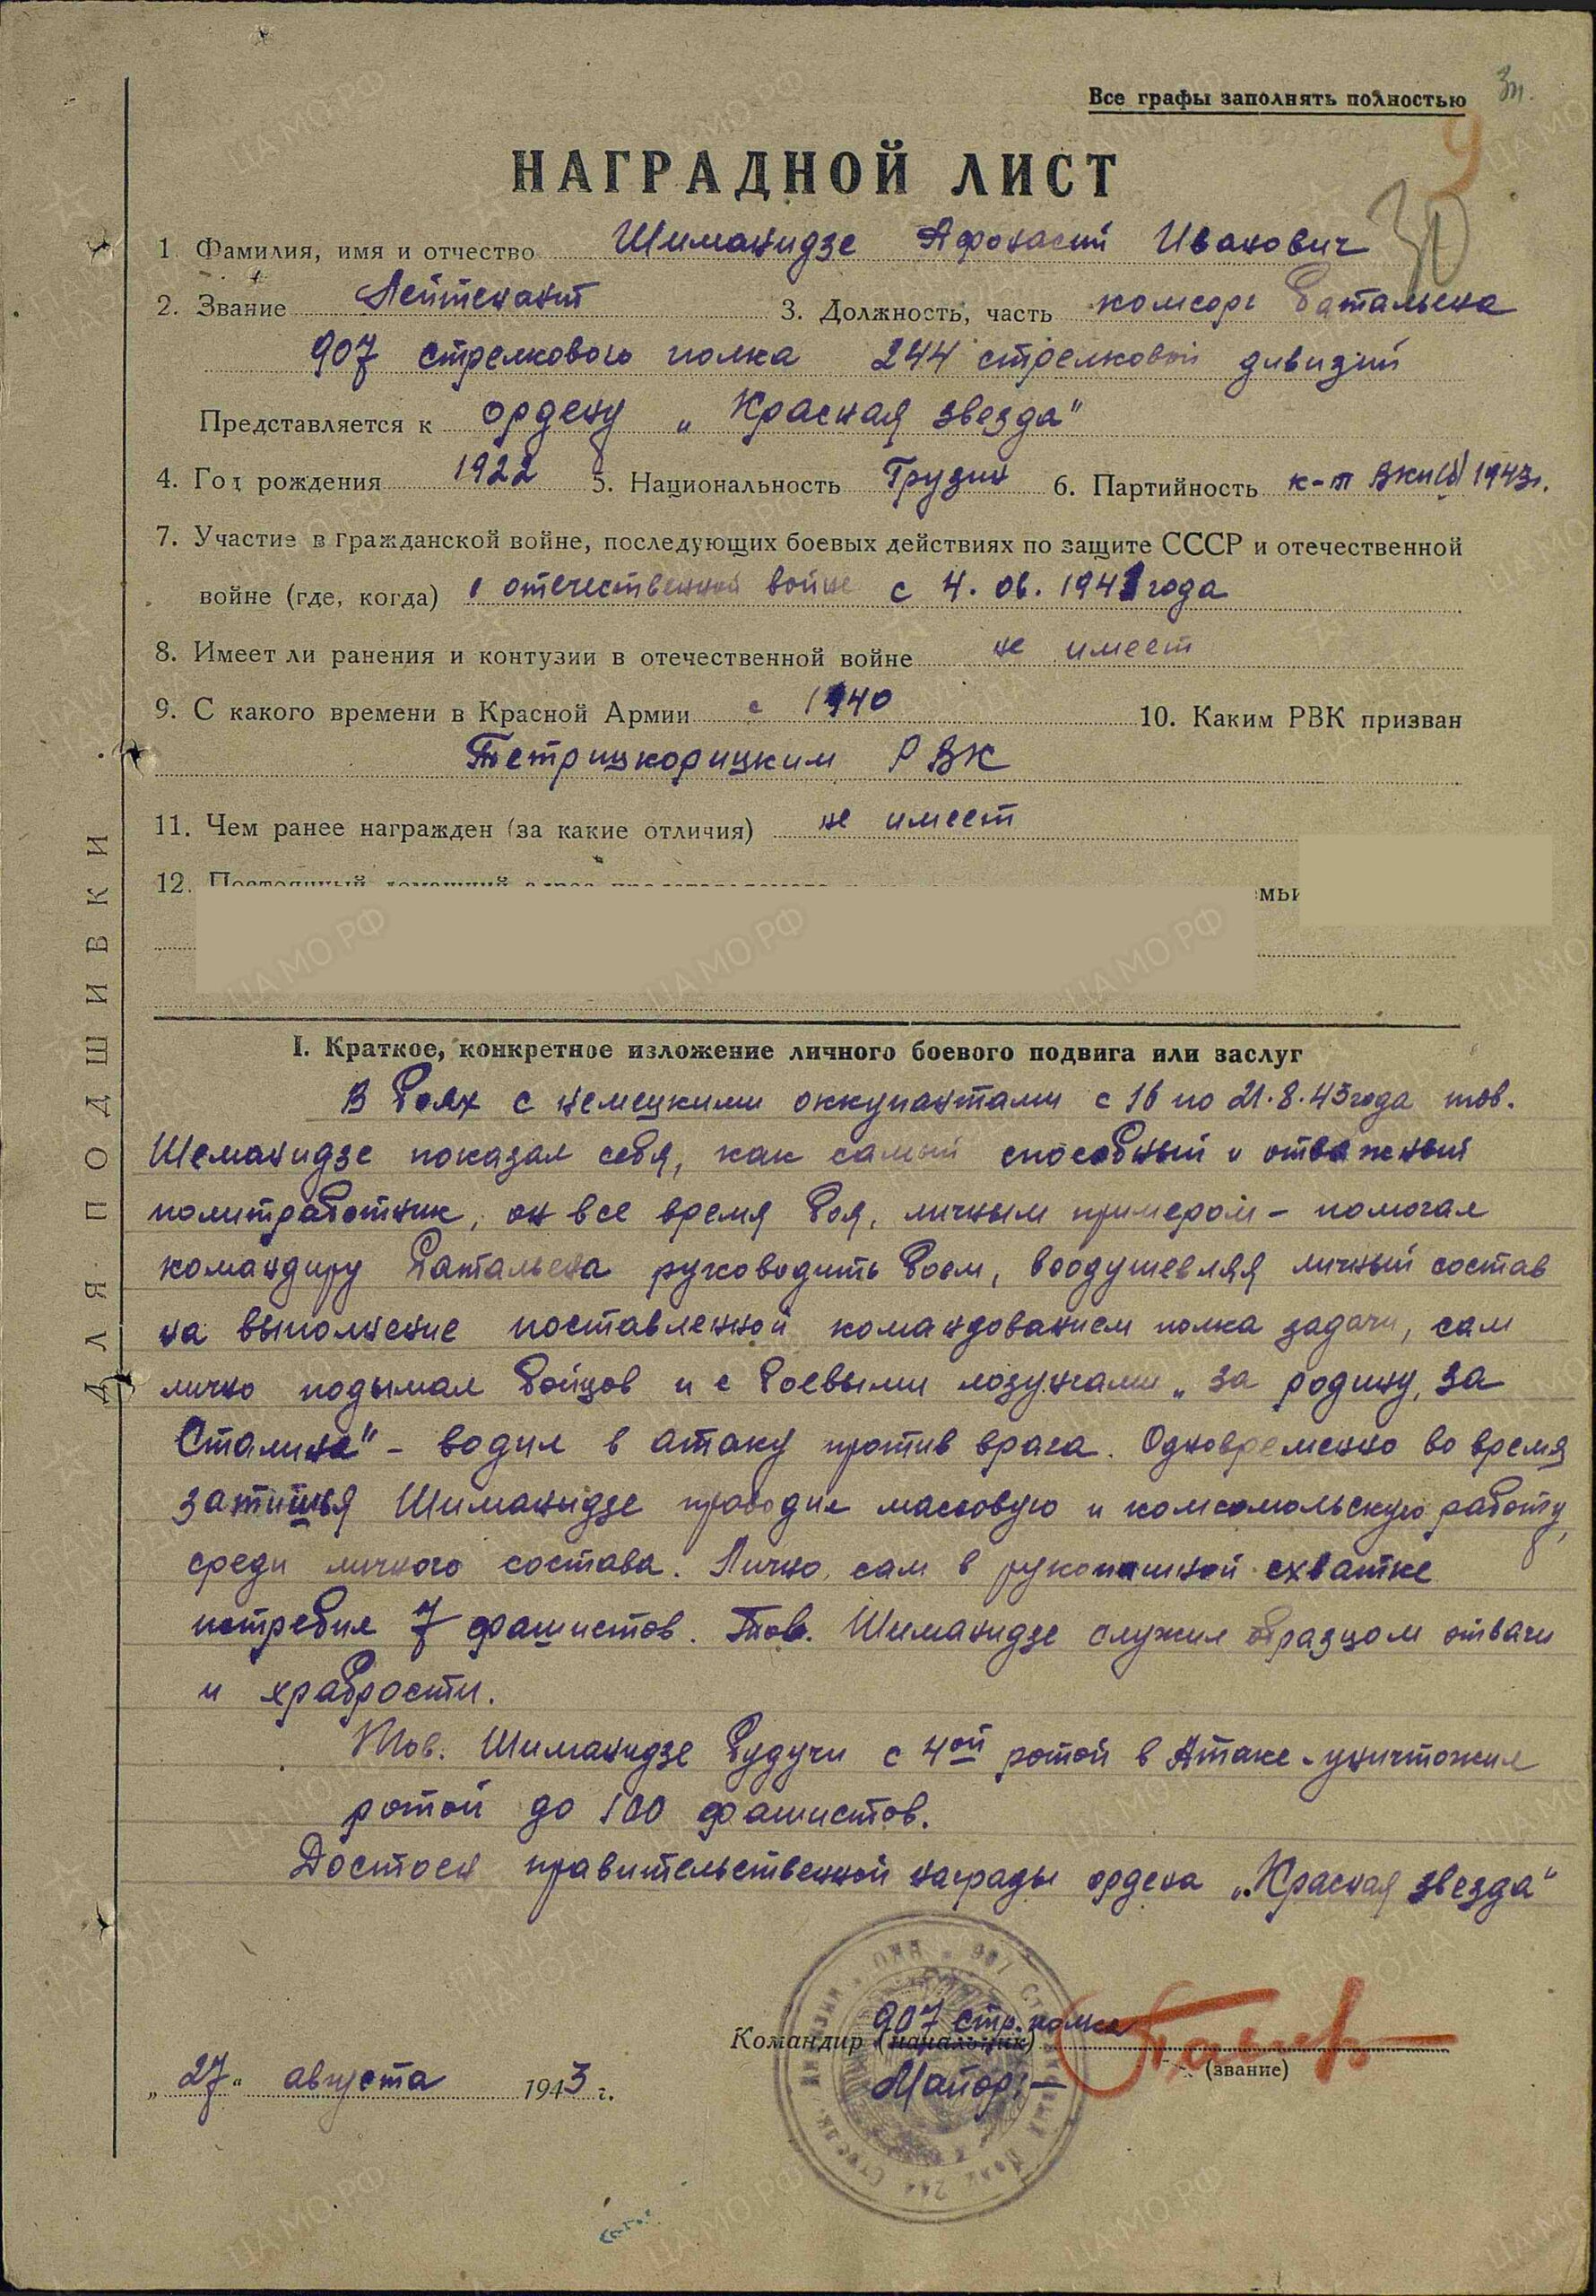 Все графы заполнять полностью
9
30
НАГРАДНОЙ ЛИСТ
1. Фамилия, имя и отчество Шиманидзе Афонасий Иванович
2. Звание Лейтенант 3. Должность, часть комсорг батальена
907 стрелкового полка 244 стрелковой дивизий
Представляется к ордену „Красная звезда"
4. Год рождения 1922 5. Национальность Грузин 6. Партийность к-т ВКП(б) 1943г.
7. Участие в гражданской войне, последующих боевых действиях по защите СССР и отечественной
войне (где, когда) в отечественной войне с 4. 06. 1941 года
8. Имеет ли ранения и контузии в отечественной войне не имеет
9. С какого времени в Красной Армии с 1940 10. Каким РВК призван
Тетрицкорицким РВК
11. Чем ранее награжден (за какие отличия) не имеет
12. Постоянный домашний адрес
ДЛЯ ПОДШИВКИ
I. Краткое, конкретное изложение личного боевого подвига или заслуг
В боях с немецкими оккупантами с 16 по 21.8.43 года тов.
Шеманидзе показал себя, как самый способный и отважный
политработник, он все время боя, личным примером – помогал
командиру батальена руководить боем, воодушевляя личный состав
на выполнение поставленной командованием полка задачи, сам
лично подымал бойцов и с боевыми лозунгами „за родину, за
Сталина" – водил в атаку против врага. Одновременно во время
затишья Шиманидзе проводил массовую и комсомольскую работу
среди личного состава. Лично сам в рукопашной схватке
истребил 7 фашистов. Тов. Шиманидзе служил образцом отваги
и храбрости.
Тов. Шиманидзе будучи с 4ой ротой в Атаке – уничтожил
ротой до 100 фашистов.
Достоен правительственной награды ордена „Красная звезда"
907 стр. полка
Командир (начальник)
(звание)
Майор: –
„27" августа 1943 г.